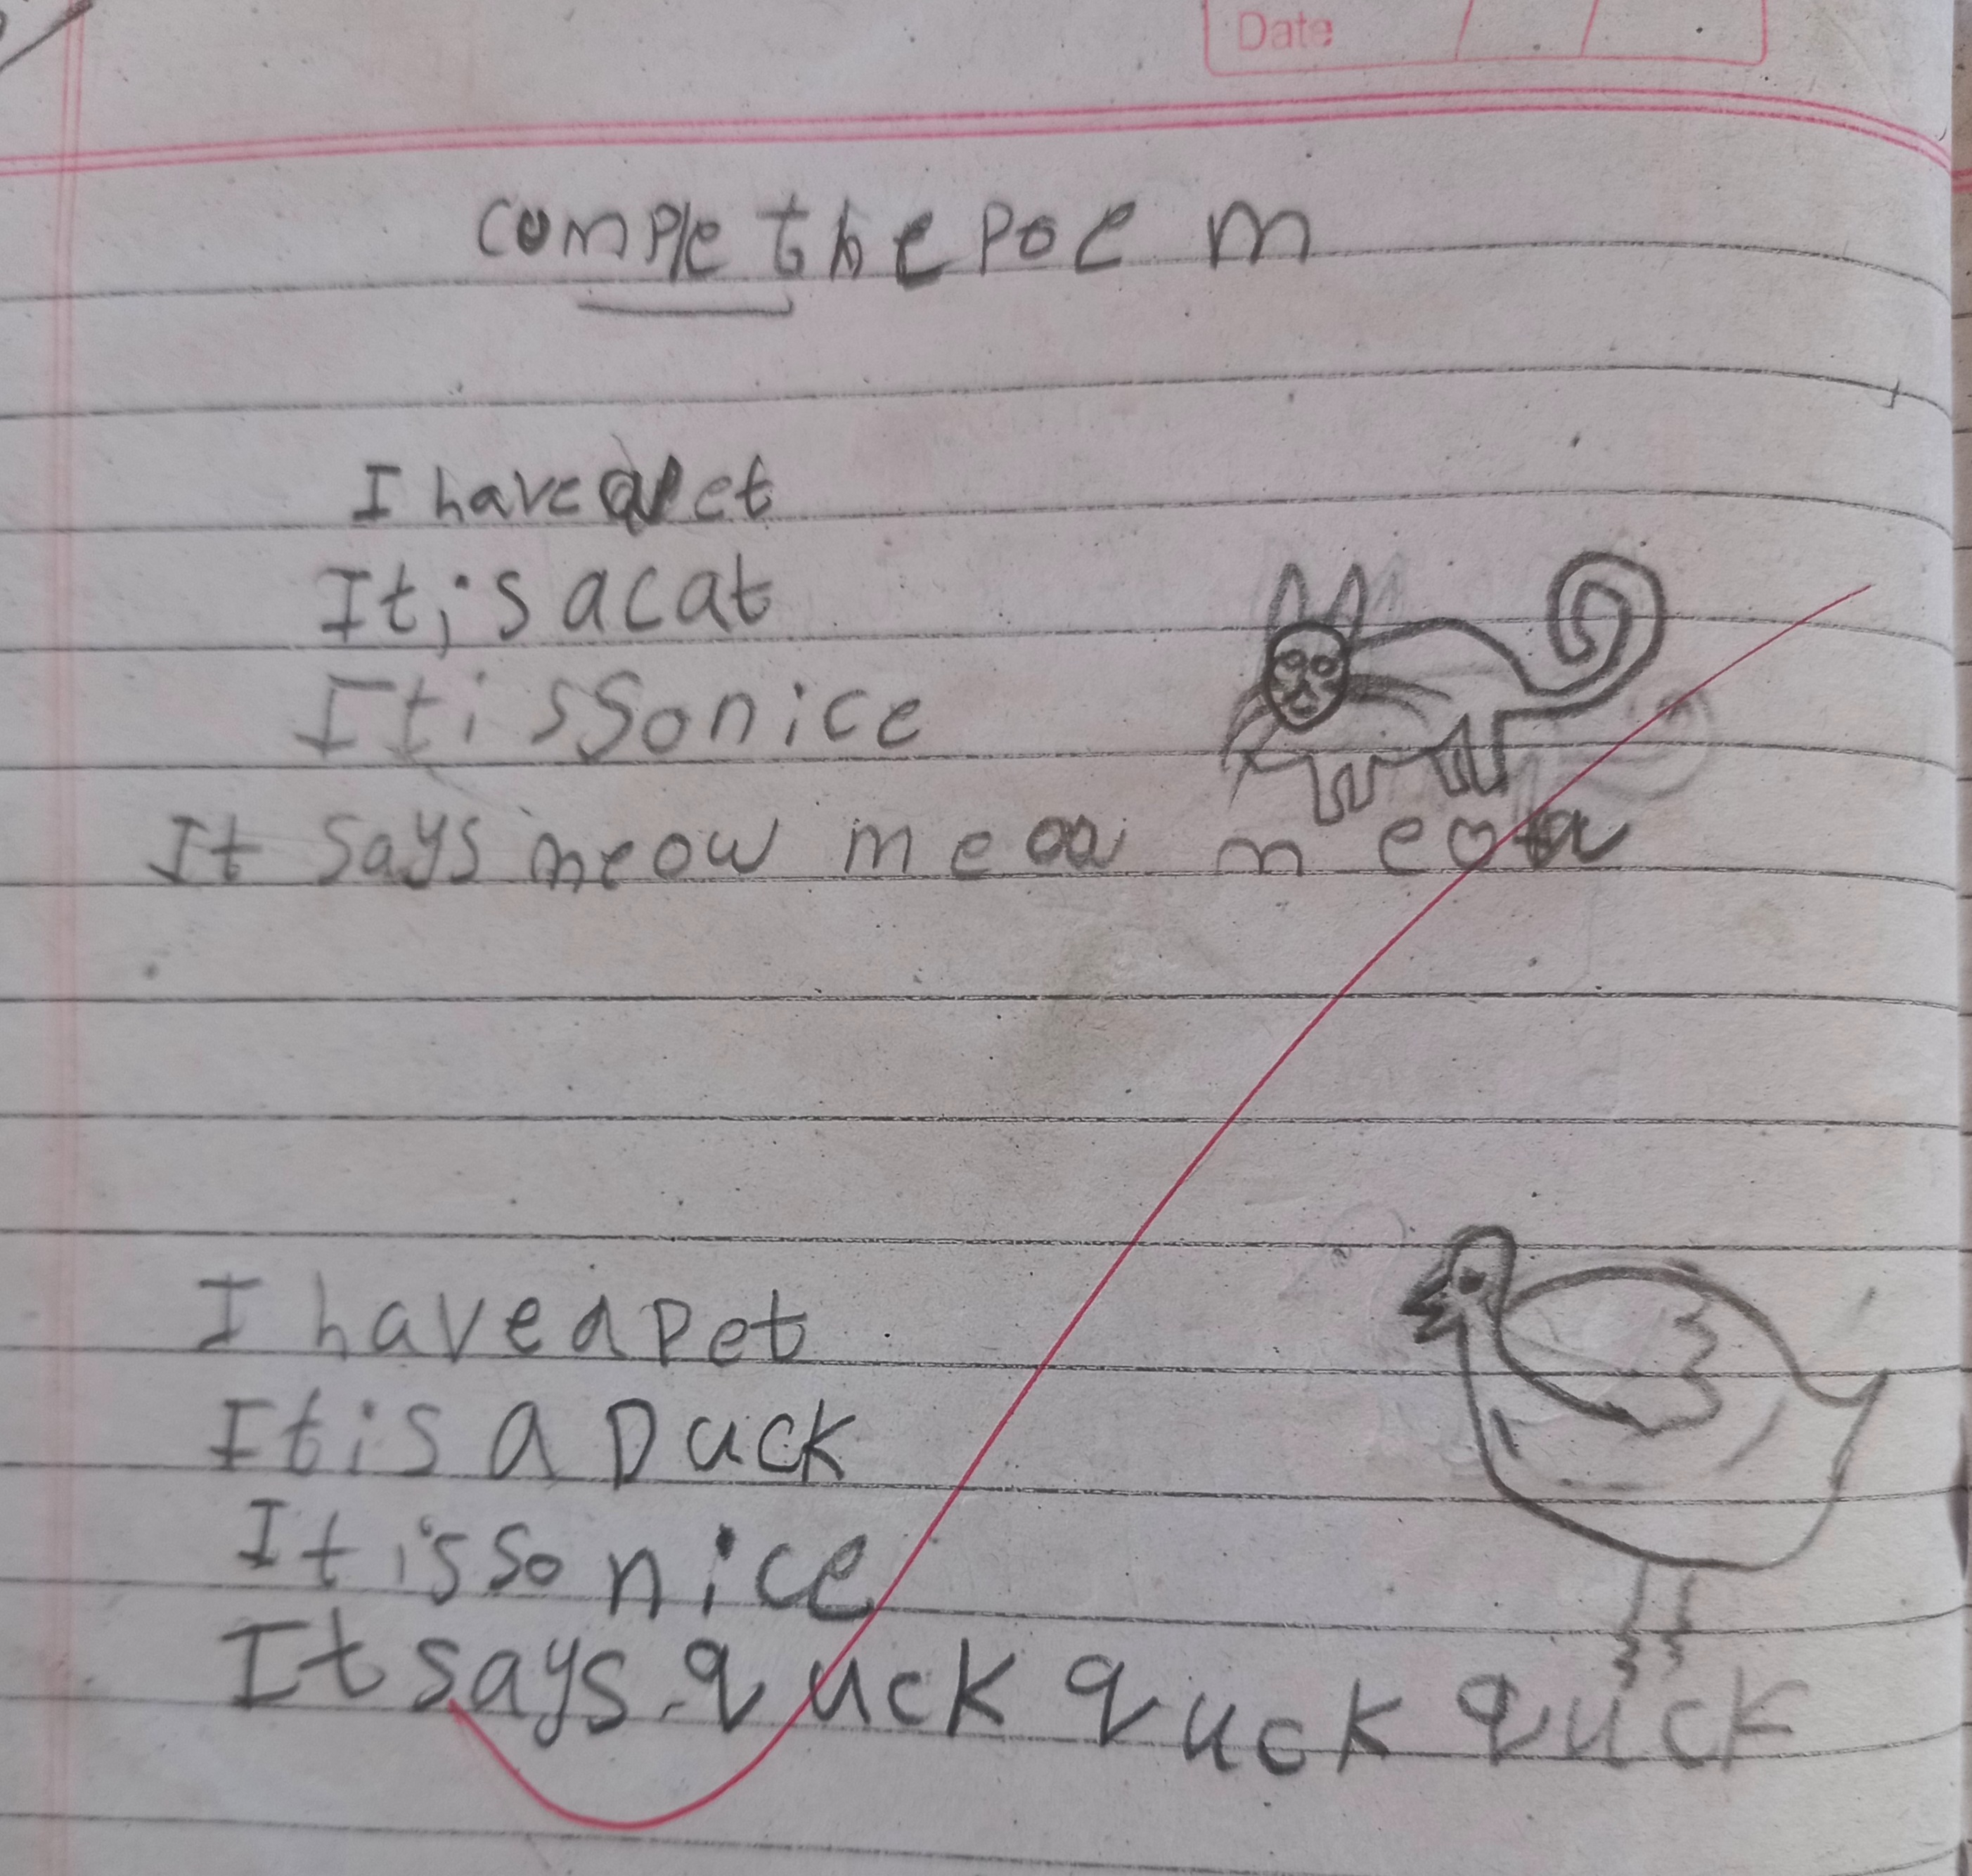 Date
comple the poem
I have a pet
It is a cat
It is so nice
It says meow meow meow
I have a pet
It is a Duck
It is so nice
It says quck quck quck